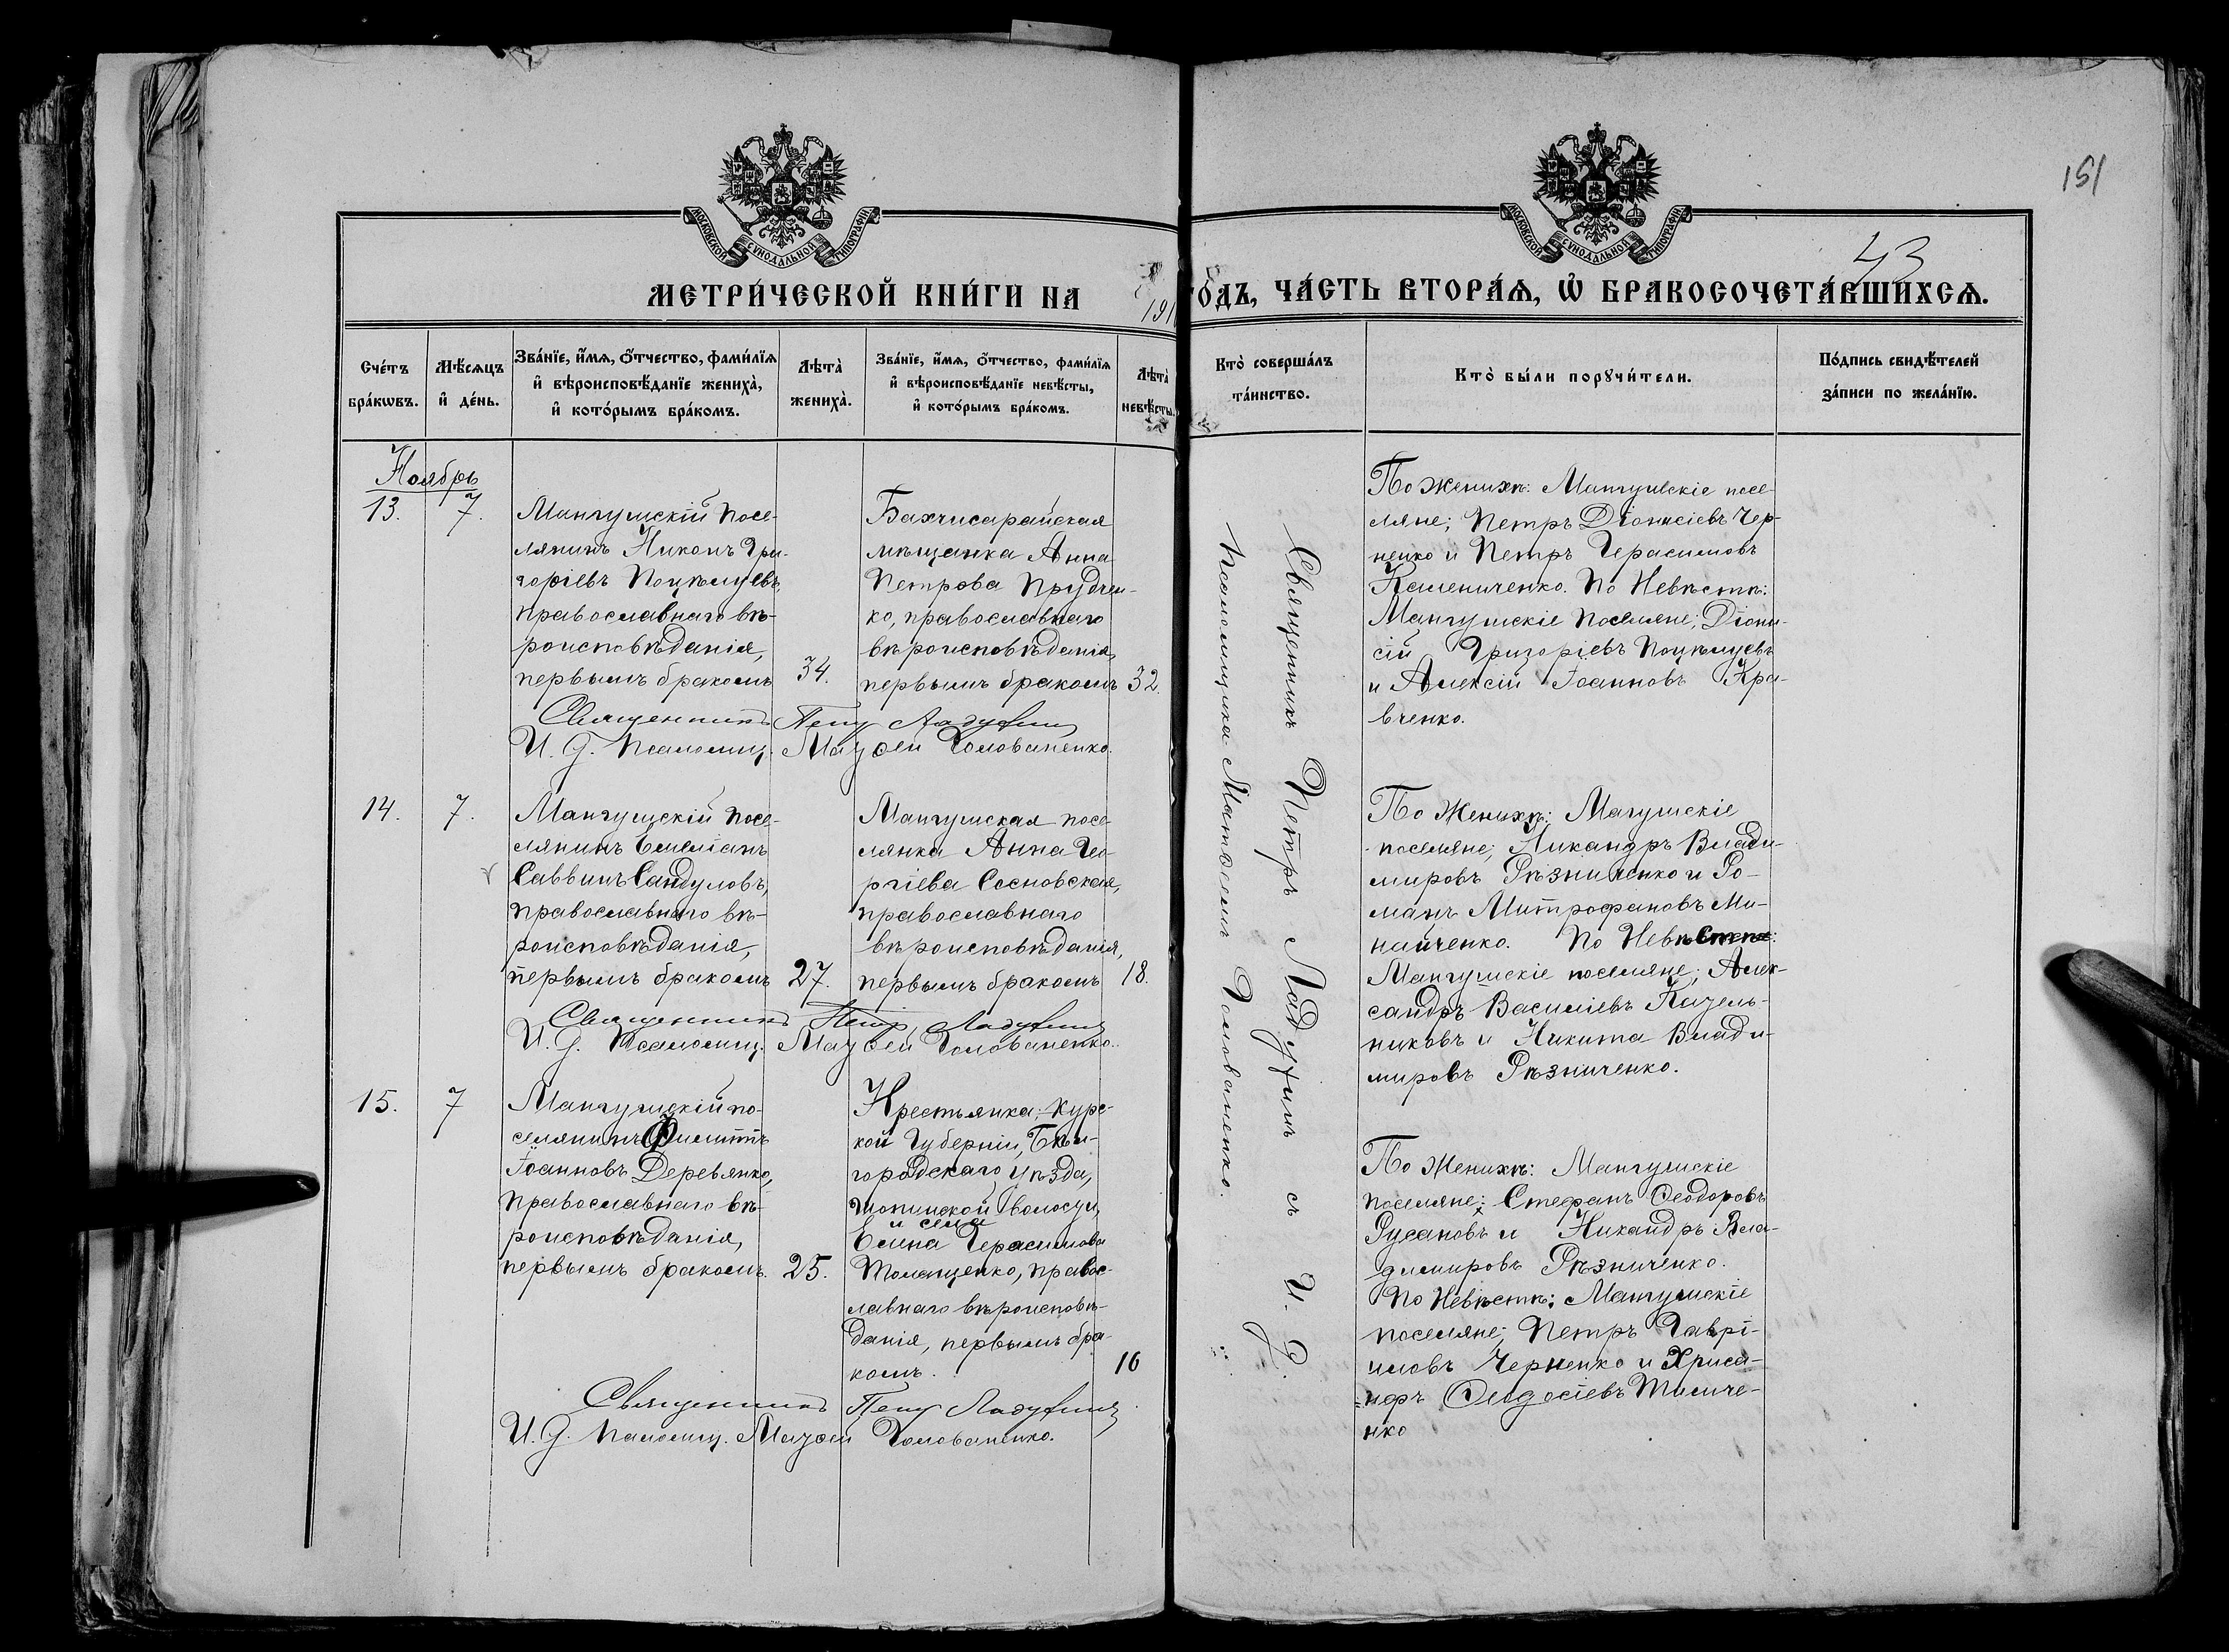 151
43
МОСКОВСКОЙ СѴНОДАЛЬНОЙ ТИПОГРАФІИ.
МОСКОВСКОЙ СѴНОДАЛЬНОЙ ТИПОГРАФІИ.
МЕТРИ́ЧЕСКОЙ КНИ́ГИ НА 191
ГО́ДЪ, ЧА́СТЬ ВТОРА́Ѧ, Ѡ҆ БРАКОСОЧЕТА́ВШИХСѦ.
Сче́тъ бра́кѡвъ.
Мѣ́сѧцъ и҆ де́нь.
Зва́нїе, и҆́мѧ, ѻ҆́тчество, фами́лїѧ
и҆ вѣроисповѣ́данїе жениха̀,
и҆ кото́рымъ бра́комъ.
Лѣта̀ жениха̀.
Зва́нїе, и҆́мѧ, ѻ҆́тчество, фами́лїѧ
и҆ вѣроисповѣ́данїе невѣ́сты,
и҆ кото́рымъ бра́комъ.
Лѣта̀ невѣ́сты.
Кто̀ соверша́лъ
та́инство.
Кто̀ бы́ли порꙋчи́тели.
По́дпись свидѣ́телей
за́писи по жела́нїю.
Ноябрь
13. 7.
Мангушскій посе-
лянинъ Никонъ Гри-
горіевъ Поцѣлуевъ,
православнаго вѣ-
роисповѣданія,
первымъ бракомъ
34.
Бахчисарайская
мѣщанка Анна
Петрова Прудчен-
ко, православнаго
вѣроисповѣданія,
первымъ бракомъ
32.
Священникъ Петръ Ладухинъ
И. д. псаломщ. Матѳей Голованенко.
По женихѣ: Мангушскіе посе-
ляне; Петръ Діонисіевъ Чер-
ненко и Петръ Герасимовъ
Калениченко. По Невѣстѣ:
Мангушскіе поселяне; Діони-
сій Григоріевъ Поцѣлуевъ
и Алексій Іоанновъ Кра-
вченко.
14. 7.
Мангушскій посе-
лянинъ Емеліанъ
Саввинъ Сандуловъ,
православнаго вѣ-
роисповѣданія,
первымъ бракомъ
27.
Мангушская посе-
лянка Анна Гео-
ргіева Сосновская,
православнаго
вѣроисповѣданія,
первымъ бракомъ
18.
Священникъ Петръ Ладухинъ
И. д. Псаломщ. Матѳей Голованенко.
По Женихѣ: Магушскіе
поселяне; Никандръ Влади-
мировъ Рѣзниченко и Ро-
манъ Митрофановъ Ми-
найченко. По Невѣстѣ:
Мангушскіе поселяне; Алек-
сандръ Василіевъ Качель-
никовъ и Никита Влади-
мировъ Рѣзниченко.
15. 7
Мангушскій по-
селянинъ Филиппъ
Іоанновъ Деревянко,
православнаго вѣ-
роисповѣданія,
первымъ бракомъ.
25.
Крестьянка; Курс-
кой Губерніи, Бѣл-
городскаго уѣзда,
Шопинской волости,
и села
Елена Герасимова
Толмаценко, правос-
лавнаго вѣроисповѣ-
данія, первымъ бра-
комъ.
16
Священникъ Петръ Ладухинъ
И. д. Псаломщ. Матѳей Голованенко.
По Женихѣ: Мангушскіе
поселяне; Стефанъ Ѳеодоровъ
Русановъ и Никандръ Вла-
димировъ Рѣзниченко.
По Невѣстѣ; Мангушскіе
поселяне; Петръ Гаврі-
иловъ Черненко и Хриса-
нфъ Ѳеодосіевъ Тимиче-
нко
Священникъ Петръ Ладухинъ съ И. д.
псаломщика Матѳеемъ Голованенко.